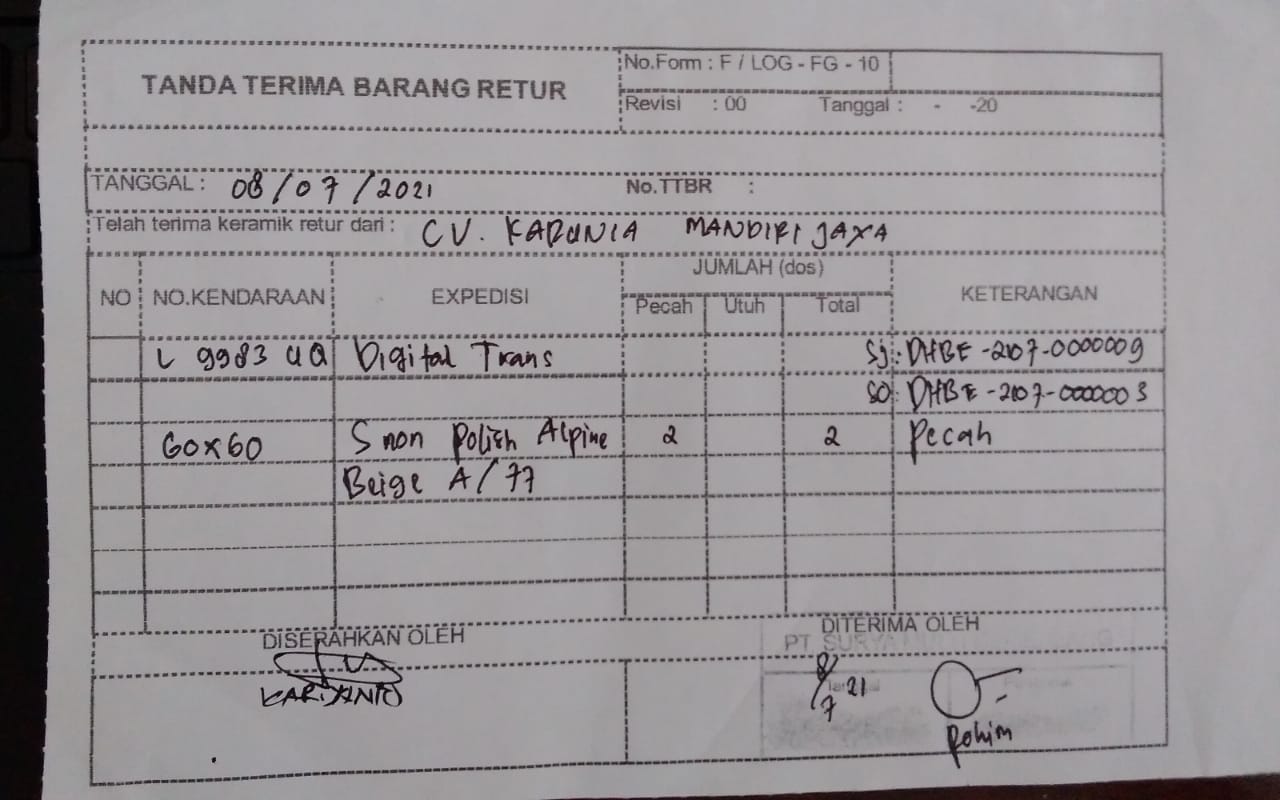 TANDA TERIMA BARANG RETUR
No.Form : F / LOG - FG - 10
Revisi : 00 Tanggal : - -20
TANGGAL : 08/07/2021 No.TTBR :
Telah terima keramik retur dari : CV. KARUNIA MANDIRI JAYA
NO NO.KENDARAAN EXPEDISI JUMLAH (dos) KETERANGAN
Pecah Utuh Total
L 9983 UQ Digital Trans Sj: DHBE-2107-0000009
SO: DHBE-2107-0000003
60x60 S non Polish Alpine 2 2 Pecah
Beige A/77
DISERAHKAN OLEH DITERIMA OLEH
PT. SURYA
8/7 21
KARIYANTO
Rohim